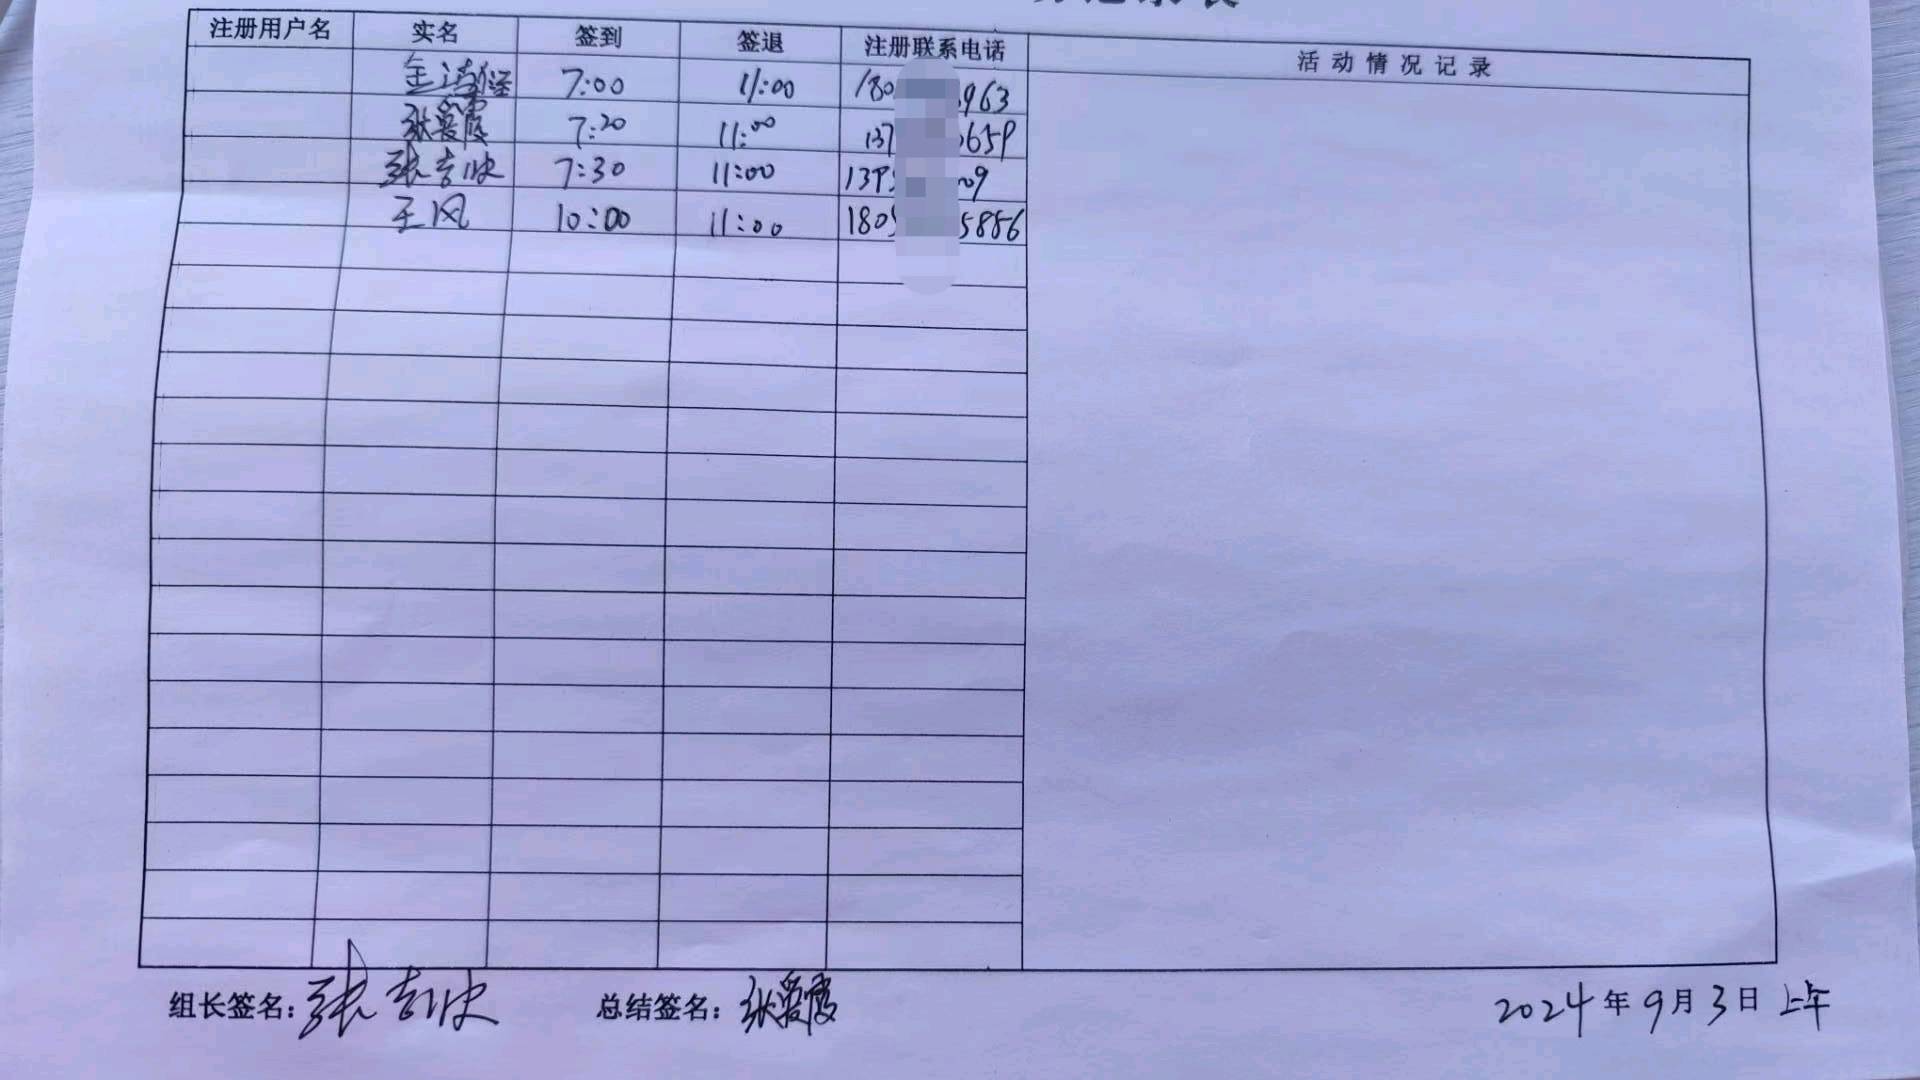 注册用户名 实名 签到 签退 注册联系电话 活动情况记录
7:00 11:00 180 963
张爱霞 7:20 11:00 137 659
张吉欣 7:30 11:00 139 09
王风 10:00 11:00 180 5886
组长签名: 张吉欣 总结签名: 张爱霞 2024年9月3日上午